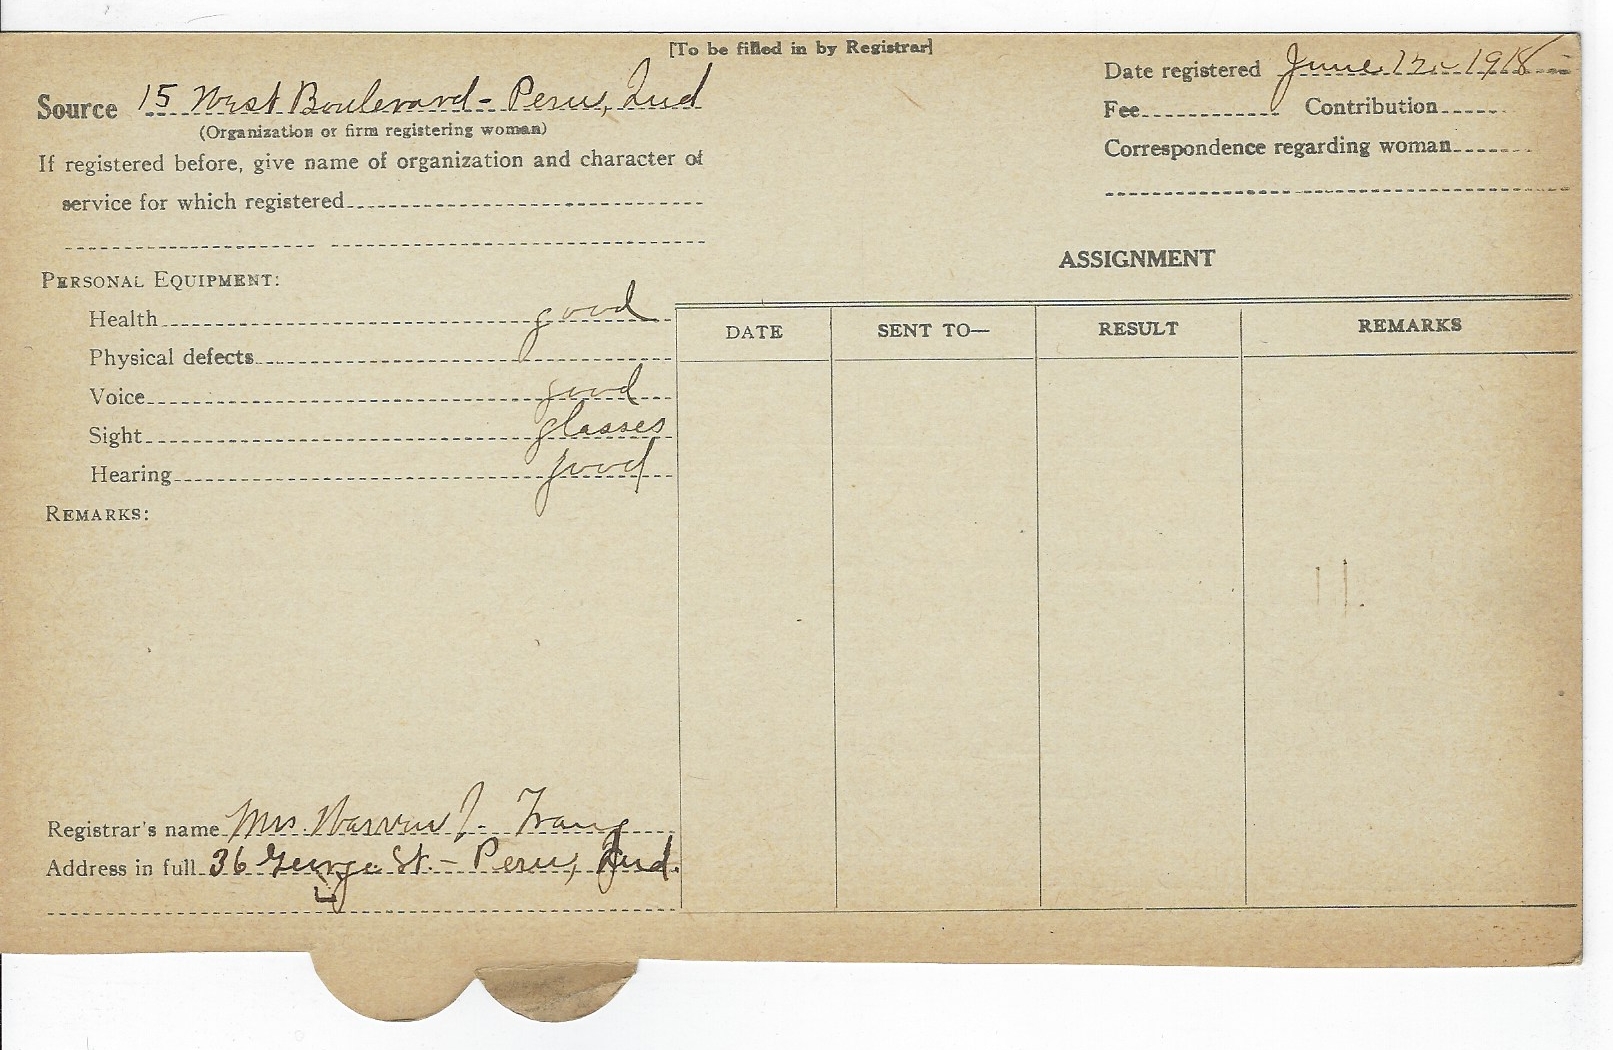 [To be filled in by Registrar]
Date registered June 12, 1918
Source 15 West Boulevard - Peru, Ind
(Organization or firm registering woman)
Fee Contribution
If registered before, give name of organization and character of
Correspondence regarding woman
service for which registered
ASSIGNMENT
PERSONAL EQUIPMENT:
Health good
Physical defects
Voice good
Sight glasses
Hearing good
REMARKS:
DATE SENT TO— RESULT REMARKS
Registrar's name Mrs. Warren J.
Address in full 36 George St. - Peru, Ind.